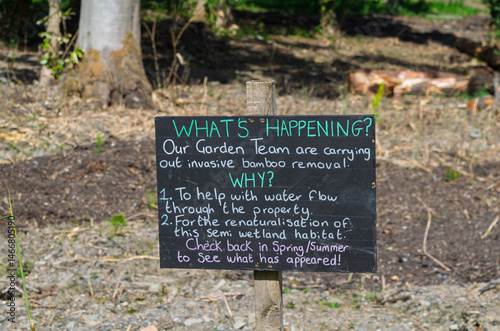 WHAT'S HAPPENING?
Our Garden Team are carrying
out invasive bamboo removal!
WHY?
1. To help with water flow
through the property.
2. For the renaturalisation of
this semi wetland habitat.
Check back in Spring/Summer
to see what has appeared!